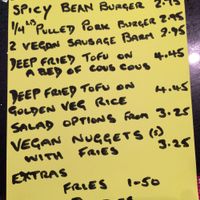 SPICY BEAN BURGER 2.95
1/4 LB PULLED PORK BURGER 2.95
2 VEGAN SAUSAGE BARM 2.95
DEEP FRIED TOFU ON 4.45
A BED OF COUS COUS
DEEP FRIED TOFU ON 4.45
GOLDEN VEG RICE
SALAD OPTIONS FROM 3.25
VEGAN NUGGETS (6)
WITH FRIES 3.25
EXTRAS
FRIES 1-50